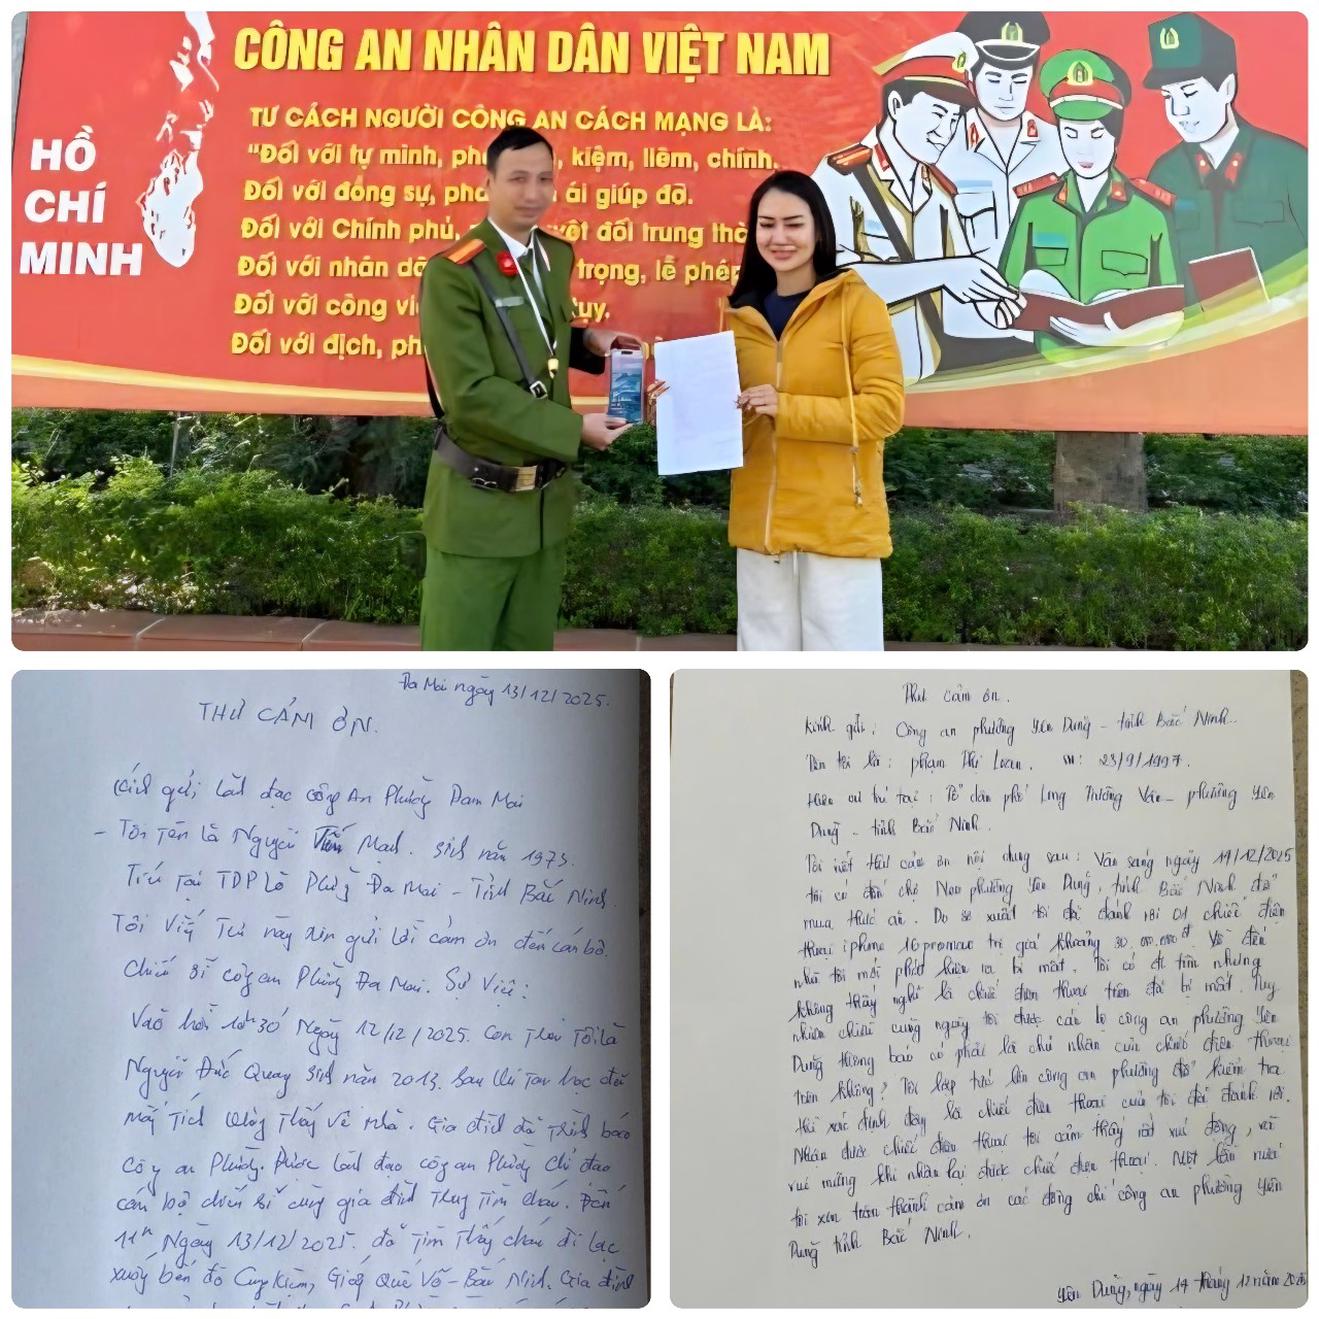 CÔNG AN NHÂN DÂN VIỆT NAM
HỒ
CHÍ
MINH
TƯ CÁCH NGƯỜI CÔNG AN CÁCH MẠNG LÀ:
"Đối với tự mình, ph kiệm, liêm, chính.
Đối với đồng sự, ái giúp đỡ.
Đối với Chính phủ, đối trung thà
Đối với nhân dâ trọng, lễ phép
Đối với công vi tụy.
Đối với địch, ph
Đa Mai ngày 13/12/2025.
THƯ CẢM ƠN.
Kính gửi; Lãnh đạo công An Phường Đa Mai
- Tôi tên là Nguyễn Mạnh. Sinh năm 1973.
Trú tại TDP Lò Phường Đa Mai - Tỉnh Bắc Ninh.
Tôi viết thư này xin gửi lời cảm ơn đến cán bộ.
Chiến sĩ công an Phường Đa Mai. Sự Việc:
Vào hồi 10h30 Ngày 12/12/2025. Con Tôi là
Nguyễn Đức Quang sinh năm 2013. Sau khi tan học đã
mất tích không thấy về nhà. Gia đình đã trình báo
công an Phường. Được lãnh đạo công an Phường chỉ đạo
cán bộ chiến sĩ cùng gia đình tìm cháu. Đến
11h Ngày 13/12/2025. đã tìm thấy cháu đi lạc
xuống bến đò Quế Võ - Bắc Ninh. Gia đình
Thư cảm ơn.
Kính gửi: Công an phường Yên Dũng - tỉnh Bắc Ninh.
Tên tôi là: phạm Thị Loan. SN: 23/9/1997.
Hiện cư trú tại: Tổ dân phố Long Trường Vân - phường Yên
Dũng - tỉnh Bắc Ninh.
Tôi viết thư cảm ơn nội dung sau: Vào sáng ngày 14/12/2025
tôi có đến chợ Neo phường Yên Dũng, tỉnh Bắc Ninh để
mua thức ăn. Do sơ xuất tôi đã đánh rơi 01 chiếc điện
thoại iphone 16 promax trị giá khoảng 30.000.000đ. Về đến
nhà tôi mới phát hiện ra bị mất. Tôi có đi tìm nhưng
không thấy nghĩ là chiếc điện thoại trên đã bị mất. Tuy
nhiên chiều cùng ngày tôi được cán bộ công an phường Yên
Dũng thông báo có phải là chủ nhân của chiếc điện thoại
trên không? Tôi lập tức lên công an phường để kiểm tra
thì xác định đây là chiếc điện thoại của tôi đã đánh rơi.
Nhận được chiếc điện thoại tôi cảm thấy rất xúc động, và
vui mừng khi nhận lại được chiếc điện thoại. Một lần nữa
tôi xin trân thành cảm ơn các đồng chí công an phường Yên
Dũng tỉnh Bắc Ninh.
Yên Dũng, ngày 14 tháng 12 năm 2025